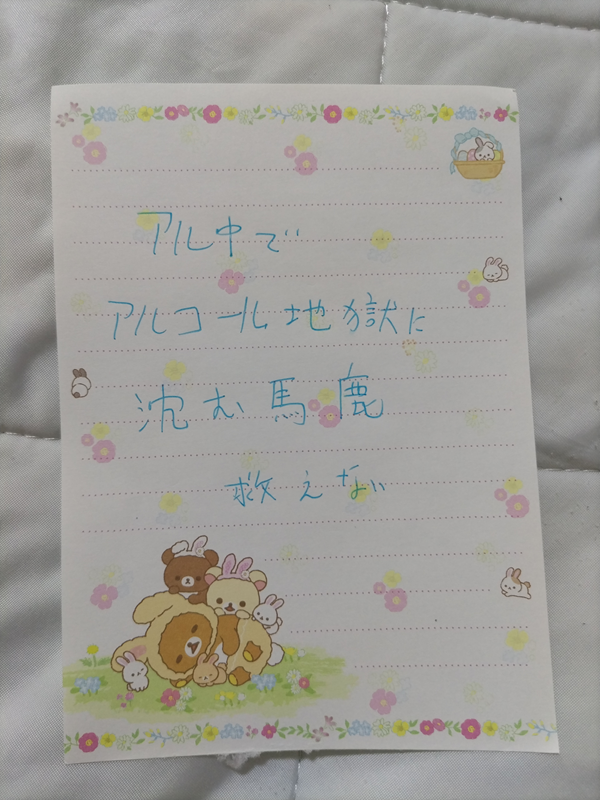 アル中で
アルコール地獄に
沈む馬鹿
救えない